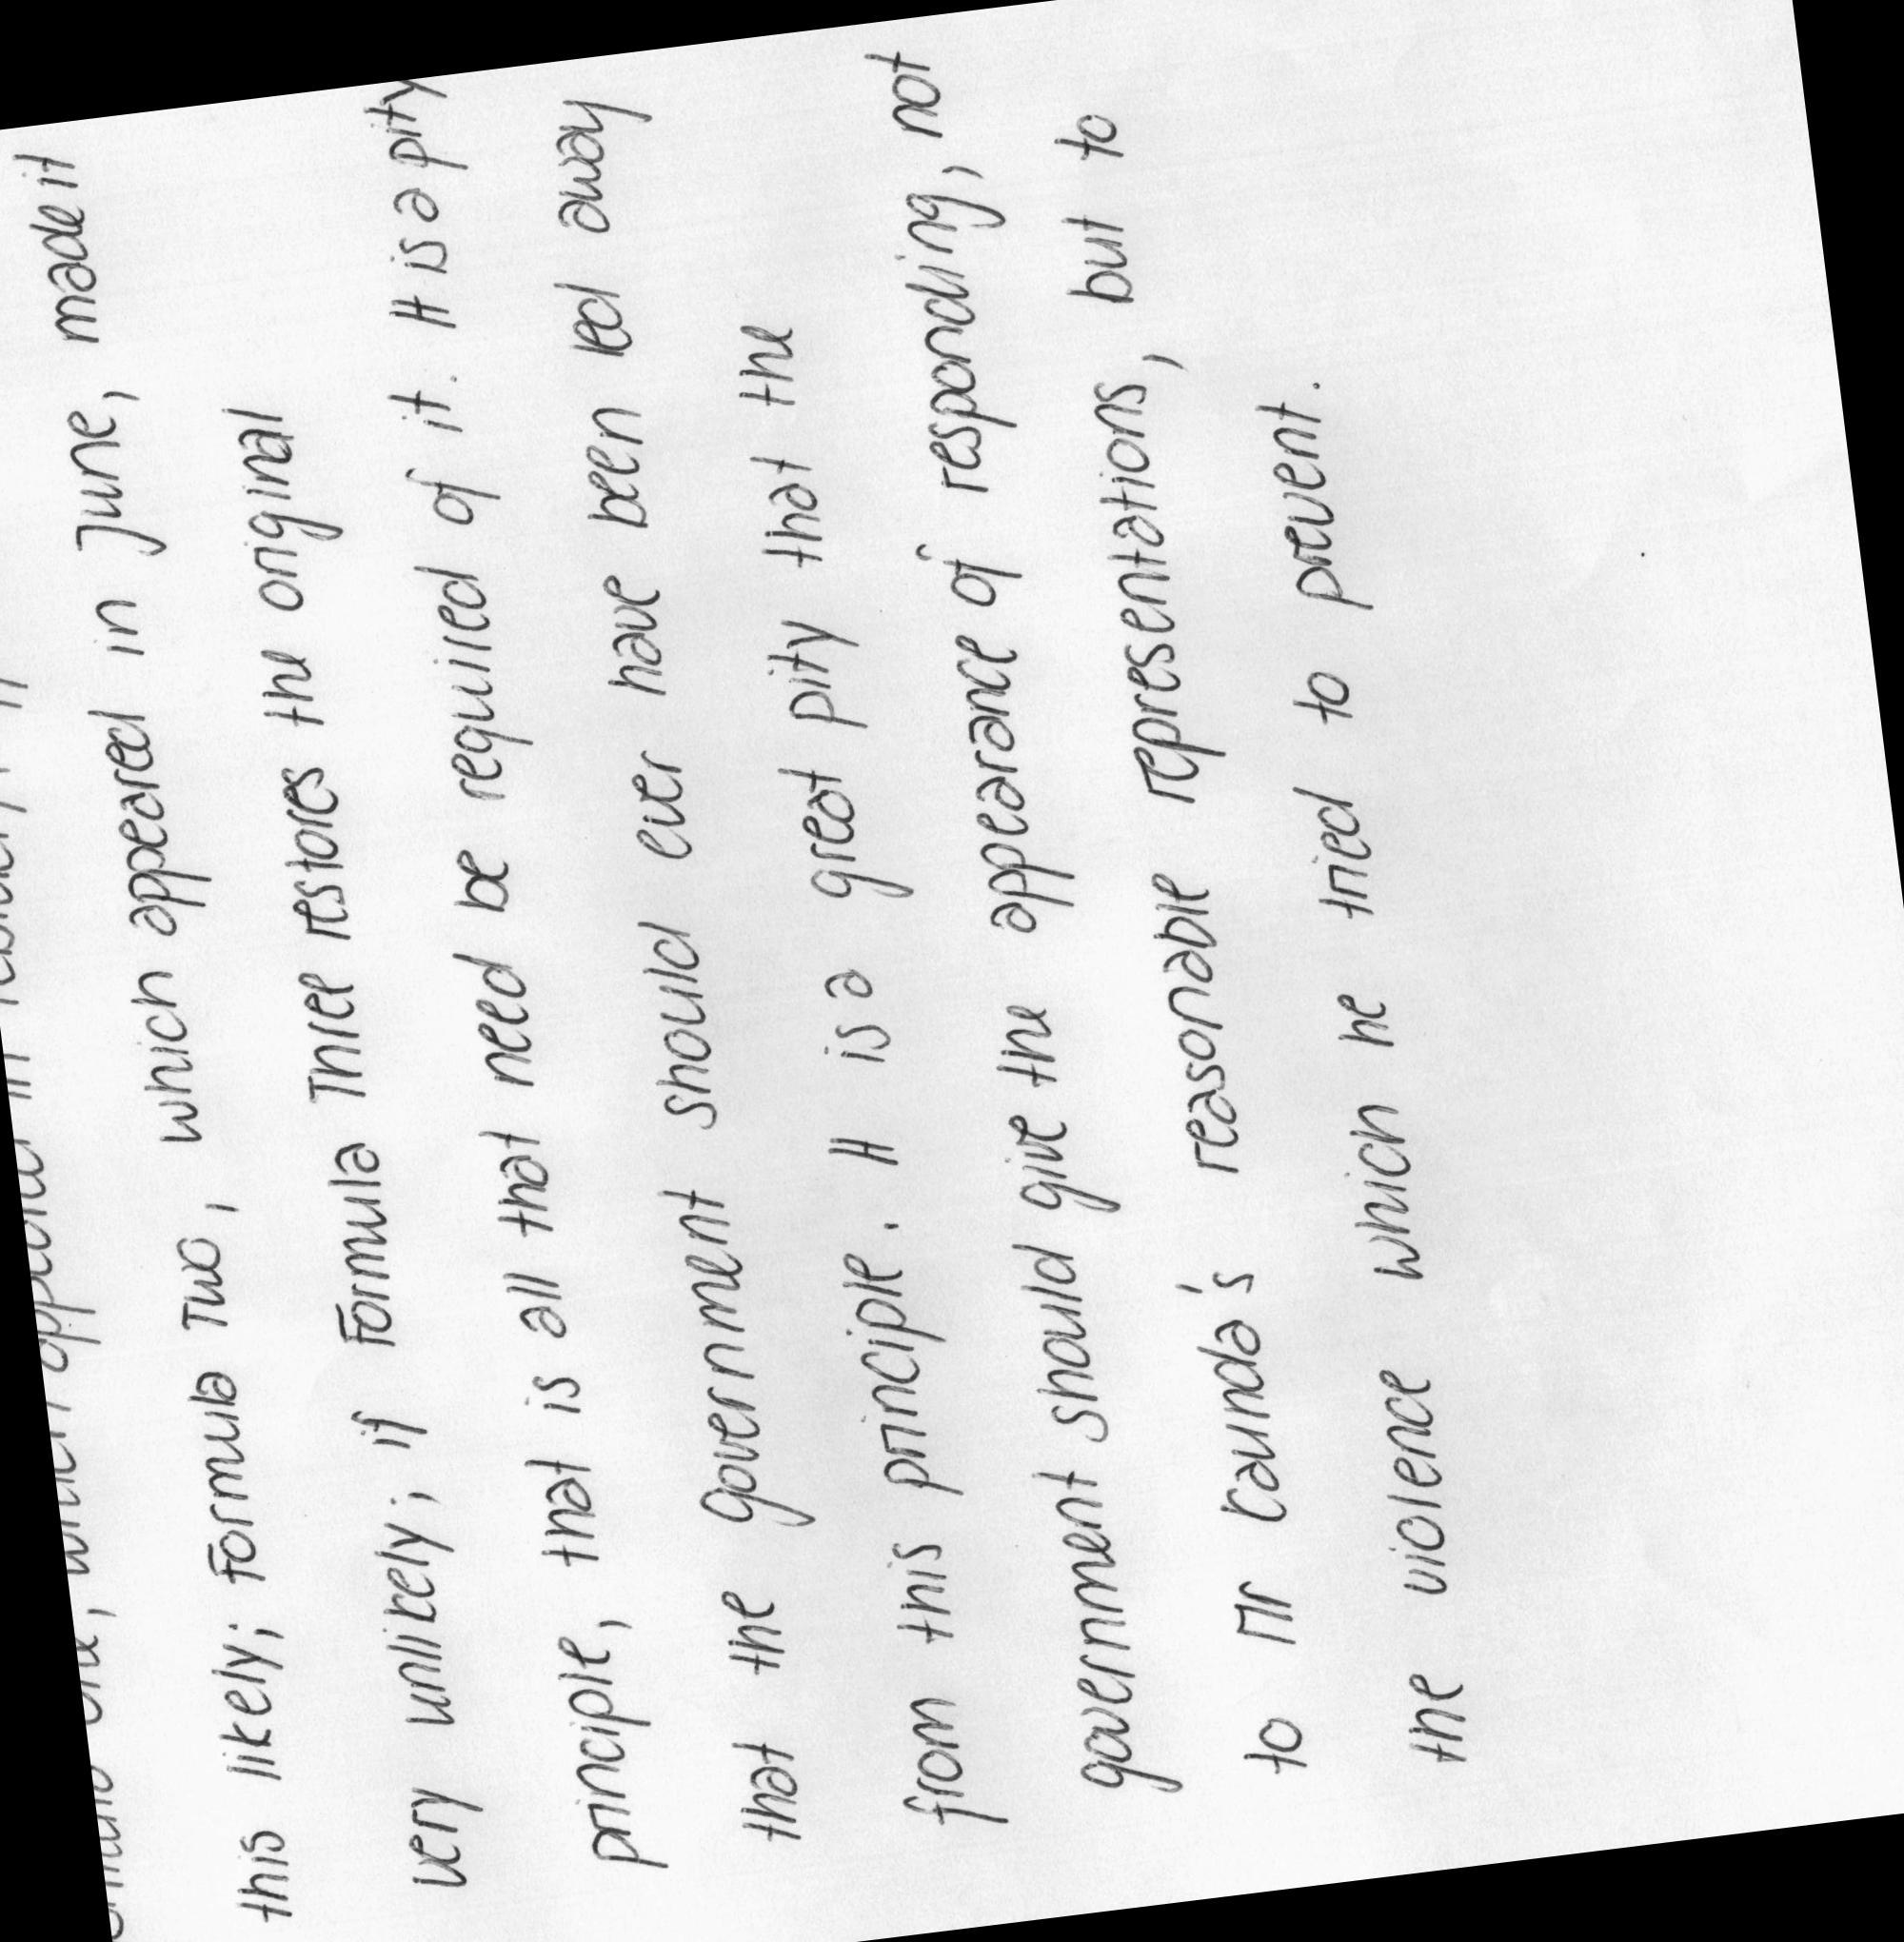 which appeared in
this likely; Formula Two, which appeared in June, made it
very unlikely; if Formula Three restores the original
principle, that is all that need be required of it. It is a pity
that the Government should ever have been led away
from this principle. It is a great pity that the
government should give the appearance of responding, not
to Mr Kaunda's reasonable representations, but to
the violence which he tried to prevent.